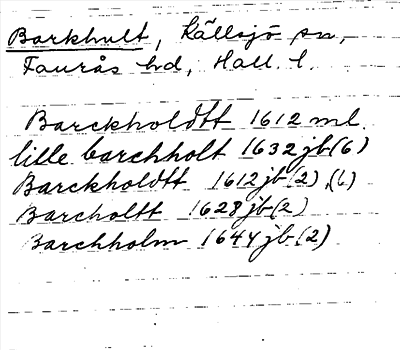 Barkhult, Källsjö sn,
Faurås hd, Hall. l.
Barckholdtt 1612 ml
lille barchholt 1632 jb (6)
Barckholdtt 1612 jb (2), (6)
Barcholtt 1628 jb (2)
Barchholm 1644 jb (2)